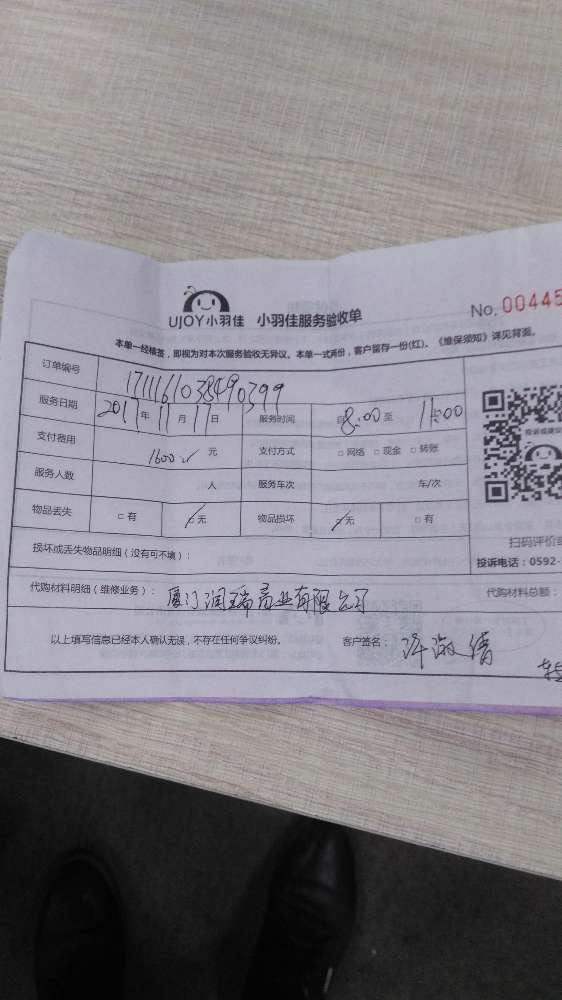 UJOY小羽佳 小羽佳服务验收单 No. 00445
本单一经核签，即视为对本次服务验收无异议。本单一式两份，客户留存一份(红)。《维保须知》详见背面。
订单编号 1711161038490399
服务日期 2017年 11月 17日 服务时间 自8:00至 11:00
支付费用 1600 元 支付方式 □网络 □现金 □转账
服务人数 人 服务车次 车/次
物品丢失 □有 □无 物品损坏 □无 □有
投诉或建议
扫码评价或
损坏或丢失物品明细（没有可不填）：
投诉电话：0592-
代购材料明细（维修业务）： 厦门润瑞商业有限公司 代购材料总额：
以上填写信息已经本人确认无误，不存在任何争议纠纷。 客户签名：